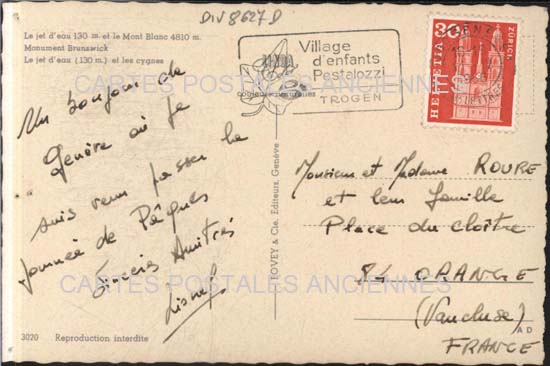 DIV 8627 D
Le jet d'eau 130 m et le Mont Blanc 4810 m.
Monument Brunswick
Le jet d'eau (130 m.) et les cygnes
Village
d'enfants
Pestalozzi
TROGEN
30
HELVETIA
ZÜRICH
CARTES POSTALES ANCIENNES
Un bonjour de
Genève où je
suis venu passer la
journée de Pâques
Sincères Amitiés
Lionel
JOVEY & Cie. Editeurs, Genève
Monsieur et Madame ROURE
et leur famille
Place du cloître
84 ORANGE
(Vaucluse)
FRANCE
CARTES POSTALES ANCIENNES
3020 Reproduction interdite
A D